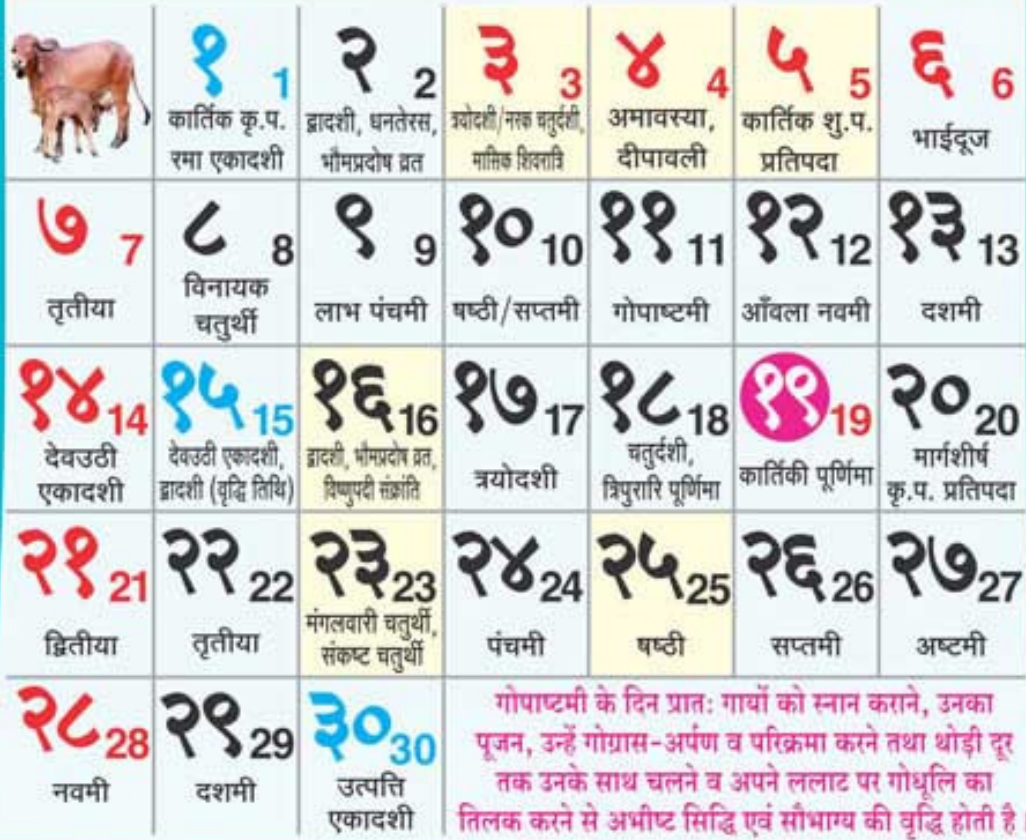 १ 1
कार्तिक कृ.प.
रमा एकादशी
२ 2
द्वादशी, धनतेरस,
भौमप्रदोष व्रत
३ 3
त्रयोदशी/नरक चतुर्दशी,
मासिक शिवरात्रि
४ 4
अमावस्या,
दीपावली
५ 5
कार्तिक शु.प.
प्रतिपदा
६ 6
भाईदूज
७ 7
तृतीया
८ 8
विनायक
चतुर्थी
९ 9
लाभ पंचमी
१० 10
षष्ठी/सप्तमी
११ 11
गोपाष्टमी
१२ 12
आँवला नवमी
१३ 13
दशमी
१४ 14
देवउठी
एकादशी
१५ 15
देवउठी एकादशी,
द्वादशी (वृद्धि तिथि)
१६ 16
द्वादशी, भौमप्रदोष व्रत,
विष्णुपदी संक्रांति
१७ 17
त्रयोदशी
१८ 18
चतुर्दशी,
त्रिपुरारि पूर्णिमा
१९ 19
कार्तिकी पूर्णिमा
२० 20
मार्गशीर्ष
कृ.प. प्रतिपदा
२१ 21
द्वितीया
२२ 22
तृतीया
२३ 23
मंगलवारी चतुर्थी,
संकष्ट चतुर्थी
२४ 24
पंचमी
२५ 25
षष्ठी
२६ 26
सप्तमी
२७ 27
अष्टमी
२८ 28
नवमी
२९ 29
दशमी
३० 30
उत्पत्ति
एकादशी
गोपाष्टमी के दिन प्रात: गायों को स्नान कराने, उनका
पूजन, उन्हें गोग्रास-अर्पण व परिक्रमा करने तथा थोड़ी दूर
तक उनके साथ चलने व अपने ललाट पर गोधूलि का
तिलक करने से अभीष्ट सिद्धि एवं सौभाग्य की वृद्धि होती है